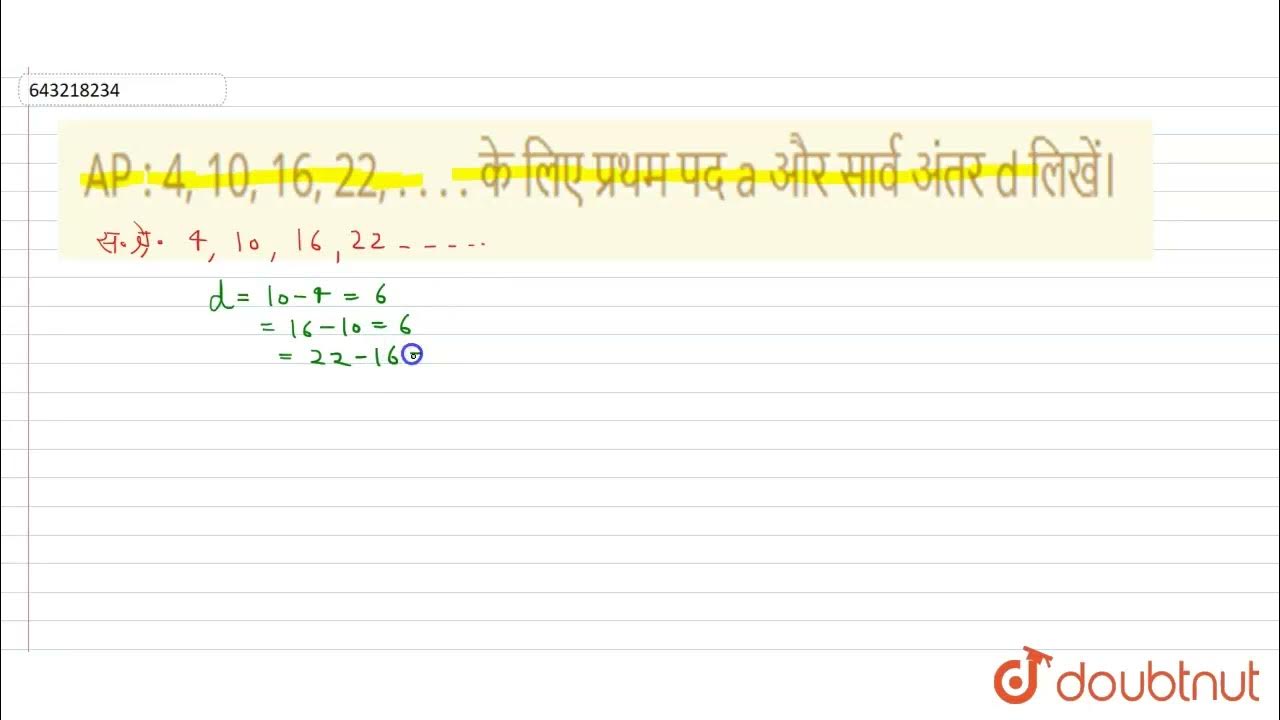 643218234
AP : 4, 10, 16, 22, . . . . के लिए प्रथम पद a और सार्व अंतर d लिखें।
स. श्रे. 4, 10, 16, 22 - - - - -
d = 10 - 4 = 6
= 16 - 10 = 6
= 22 - 16 =
doubtnut